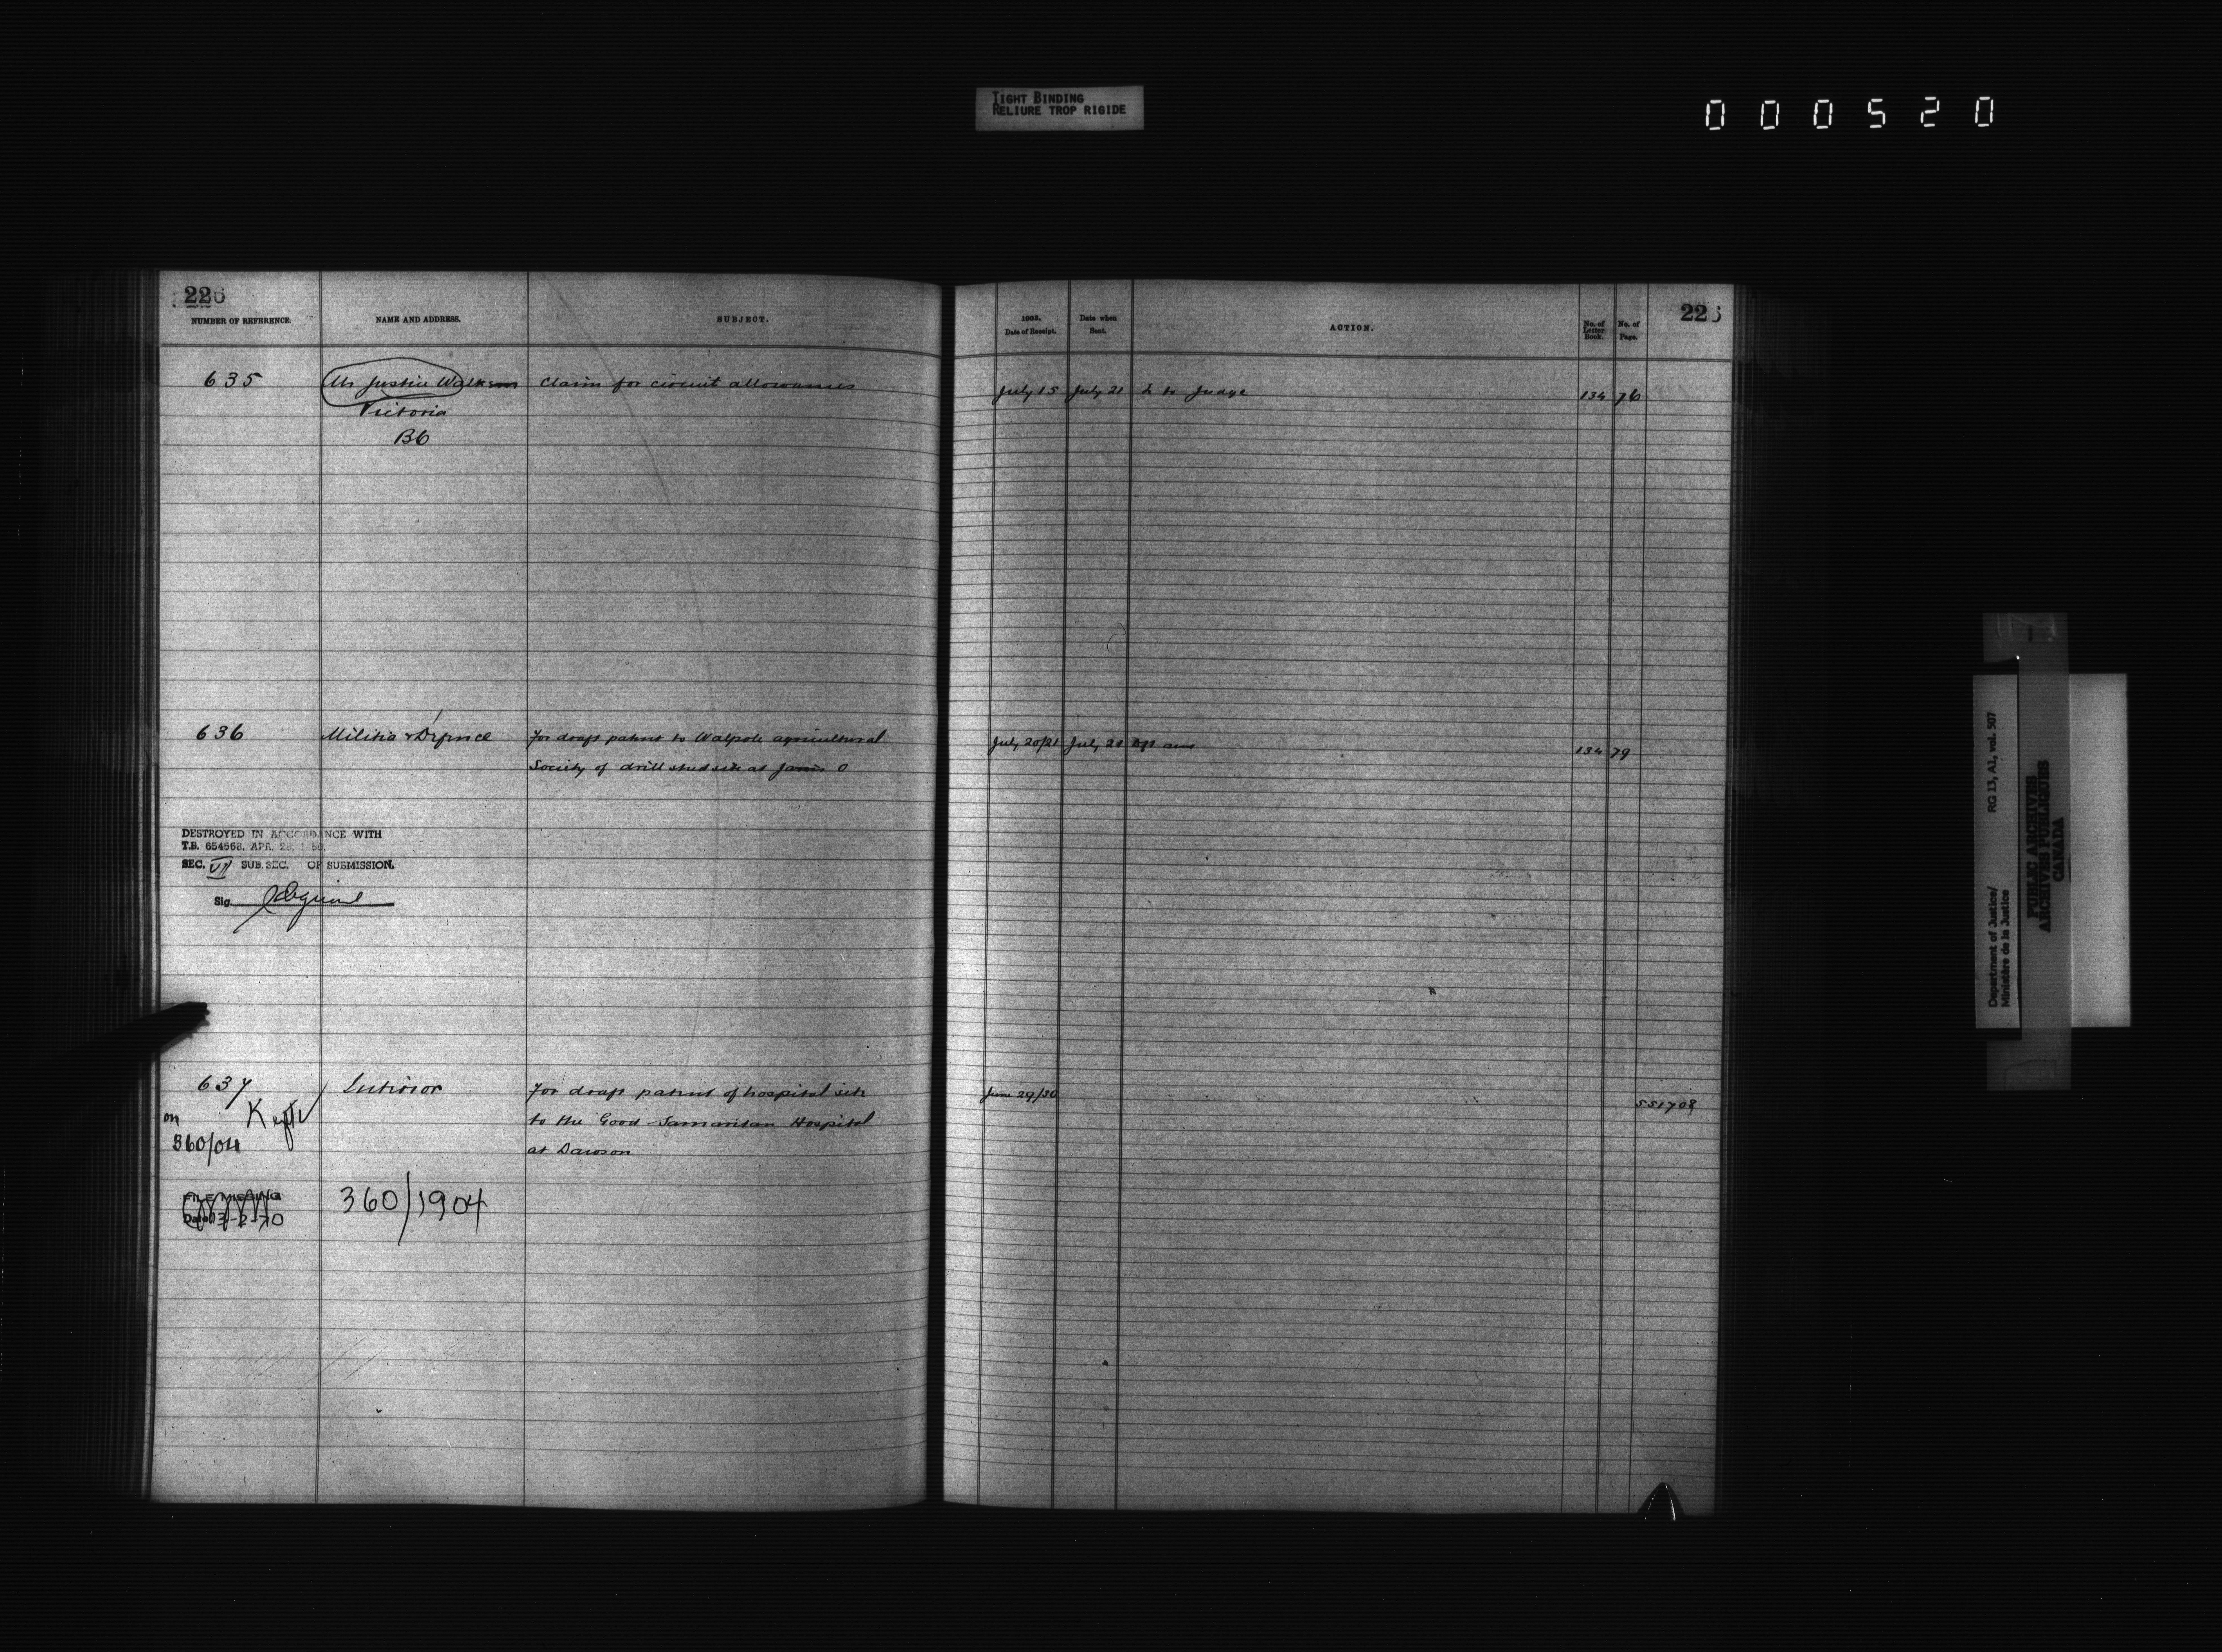 TIGHT BINDING
RELIURE TROP RIGIDE
000520
226
NUMBER OF REFERENCE.
NAME AND ADDRESS.
SUBJECT.
635
Mr Justice Walkem
Claim for circuit allowances
Victoria
BC
636
Militia & Defence
For draft patent to Walpole agricultural
Society of drill shed site at Jarvis O
DESTROYED IN ACCORDANCE WITH
T.B. 654568, APR. 28,
SEC. VII SUB. SEC. OF SUBMISSION.
Sig.
637
Interior
For draft patent of hospital site
on
to the Good Samaritan Hospital
360/04
at Dawson
FILE MISSING
Date 13-2-70
360/1904
226
1903.
Date of Receipt.
Date when
Sent.
ACTION.
No. of
Letter
Book.
No. of
Page.
July 15
July 21
L to Judge
134
76
July 20/21
July 21
134
79
June 29/30
551708
Department of Justice/
Ministère de la Justice
RG 13, A1, vol. 507
PUBLIC ARCHIVES
ARCHIVES PUBLIQUES
CANADA